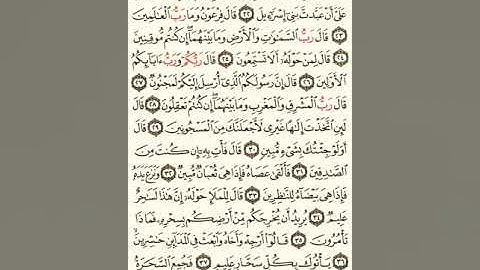 عَلَىَّ أَنْ عَبَّدتَّ بَنِىٓ إِسْرَٰٓءِيلَ ٢٢ قَالَ فِرْعَوْنُ وَمَا رَبُّ ٱلْعَٰلَمِينَ
٢٣ قَالَ رَبُّ ٱلسَّمَٰوَٰتِ وَٱلْأَرْضِ وَمَا بَيْنَهُمَآ إِن كُنتُم مُّوقِنِينَ
٢٤ قَالَ لِمَنْ حَوْلَهُۥٓ أَلَا تَسْتَمِعُونَ ٢٥ قَالَ رَبُّكُمْ وَرَبُّ ءَابَآئِكُمُ
ٱلْأَوَّلِينَ ٢٦ قَالَ إِنَّ رَسُولَكُمُ ٱلَّذِىٓ أُرْسِلَ إِلَيْكُمْ لَمَجْنُونٌ ٢٧
قَالَ رَبُّ ٱلْمَشْرِقِ وَٱلْمَغْرِبِ وَمَا بَيْنَهُمَآ إِن كُنتُمْ تَعْقِلُونَ ٢٨ قَالَ
لَئِنِ ٱتَّخَذْتَ إِلَٰهًا غَيْرِى لَأَجْعَلَنَّكَ مِنَ ٱلْمَسْجُونِينَ ٢٩ قَالَ
أَوَلَوْ جِئْتُكَ بِشَىْءٍ مُّبِينٍ ٣٠ قَالَ فَأْتِ بِهِۦٓ إِن كُنتَ مِنَ
ٱلصَّٰدِقِينَ ٣١ فَأَلْقَىٰ عَصَاهُ فَإِذَا هِىَ ثُعْبَانٌ مُّبِينٌ ٣٢ وَنَزَعَ يَدَهُۥ
فَإِذَا هِىَ بَيْضَآءُ لِلنَّٰظِرِينَ ٣٣ قَالَ لِلْمَلَإِ حَوْلَهُۥٓ إِنَّ هَٰذَا لَسَٰحِرٌ
عَلِيمٌ ٣٤ يُرِيدُ أَن يُخْرِجَكُم مِّنْ أَرْضِكُم بِسِحْرِهِۦ فَمَاذَا
تَأْمُرُونَ ٣٥ قَالُوٓا۟ أَرْجِهْ وَأَخَاهُ وَٱبْعَثْ فِى ٱلْمَدَآئِنِ حَٰشِرِينَ
٣٦ يَأْتُوكَ بِكُلِّ سَحَّارٍ عَلِيمٍ ٣٧ فَجُمِعَ ٱلسَّحَرَةُ